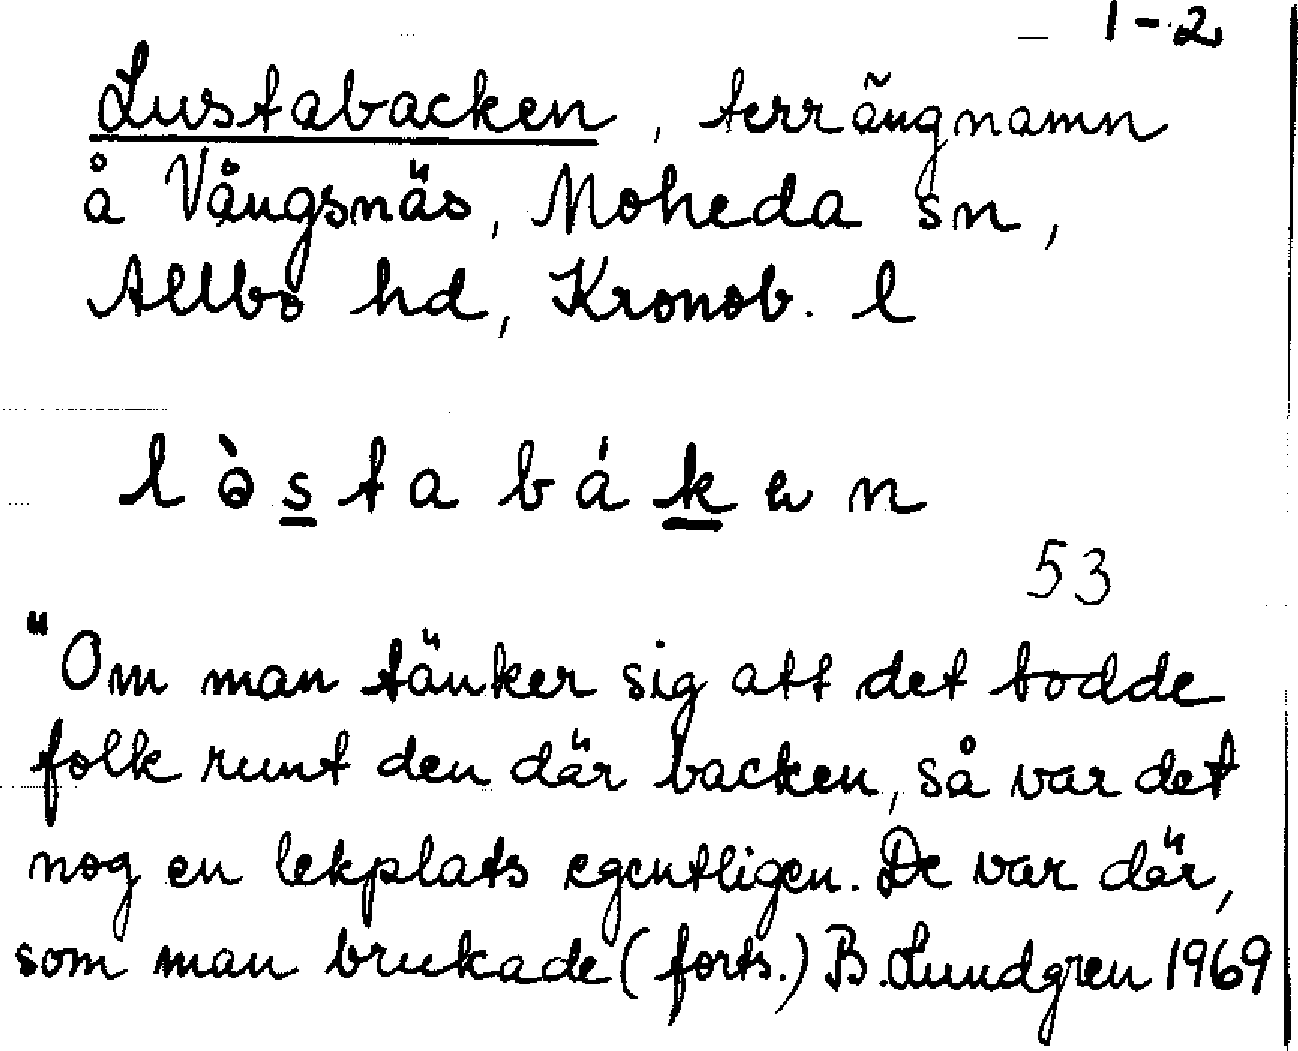 1-2
Lustabacken, terrängnamn
å Vångsnäs, Moheda sn,
Allbo hd, Kronob. l
lɵ̀stabáken
53
"Om man tänker sig att det bodde
folk runt den där backen, så var det
nog en lekplats egentligen. De var där,
som man brukade (forts.) B. Lundgren 1969